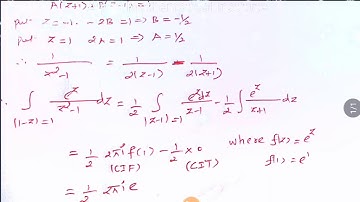 A(z+1)+B(z-1)=1
put z=-1. -2B=1 ⇒ B=-1/2
put z=1 2A=1 ⇒ A=1/2
∴ 1/(z²-1) = 1/(2(z-1)) - 1/(2(z+1))
∫_{|1-z|=1} e^z/(z²-1) dz = 1/2 ∫_{|z-1|=1} e^z dz/(z-1) - 1/2 ∫ e^z/(z+1) dz
= 1/2 2πi f(1) - 1/2 × 0 where f(z) = e^z
(CIF) (CIT) f(1) = e^1
= 1/2 2πi e
1/1